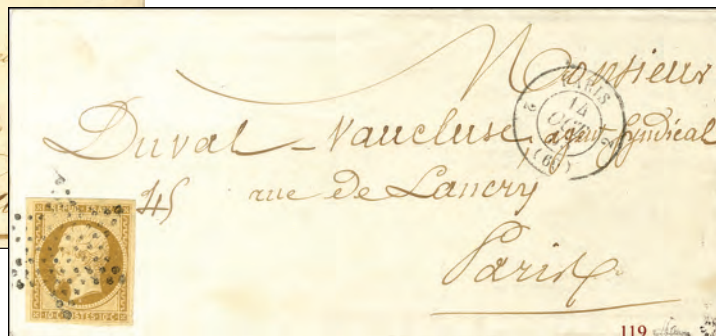 Monsieur
Duval-Vaucluse agent Syndical
45 rue de Lancry
Paris
PARIS
2 2
14
(60)
10·C· POSTES·10·C
119